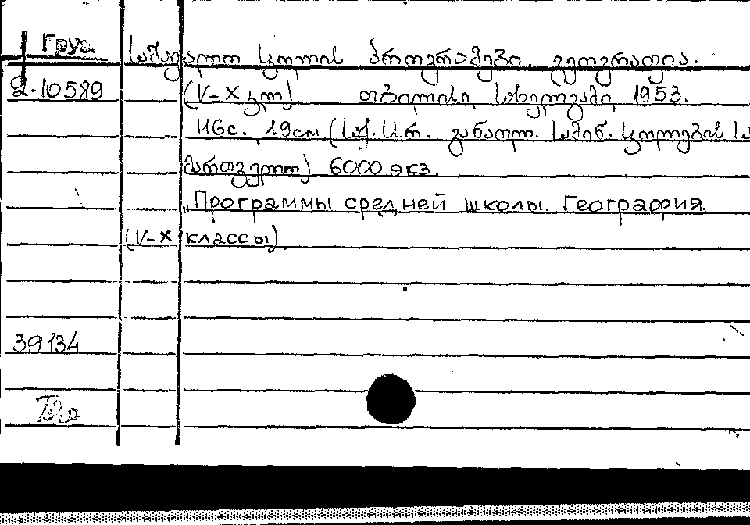 Груз.
საშუალო სკოლის პროგრამები. გეოგრაფია.
2-10589
(V-X კლ) თბილისი, სახელგამი, 1953.
116с. 19см. (საქ. სსრ. განათლ. სამინ. სკოლების სა
მმართველო) 6000 экз.
Программы средней школы. География
(V-X классы)
39134